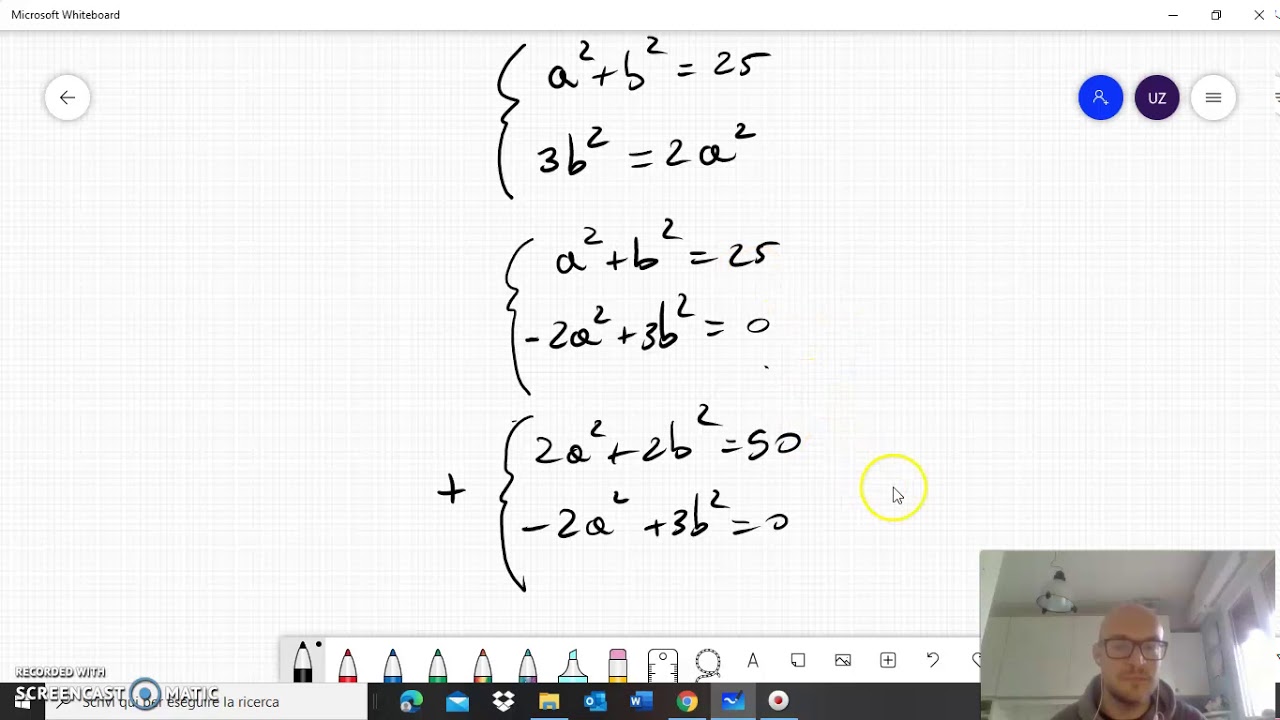 Microsoft Whiteboard
a²+b²=25
UZ
3b²=2a²
a²+b²=25
-2a²+3b²=0
2a²+2b²=50
+
-2a²+3b²=0
A
RECORDED WITH
SCREENCAST MATIC
Scrivi qui per eseguire la ricerca